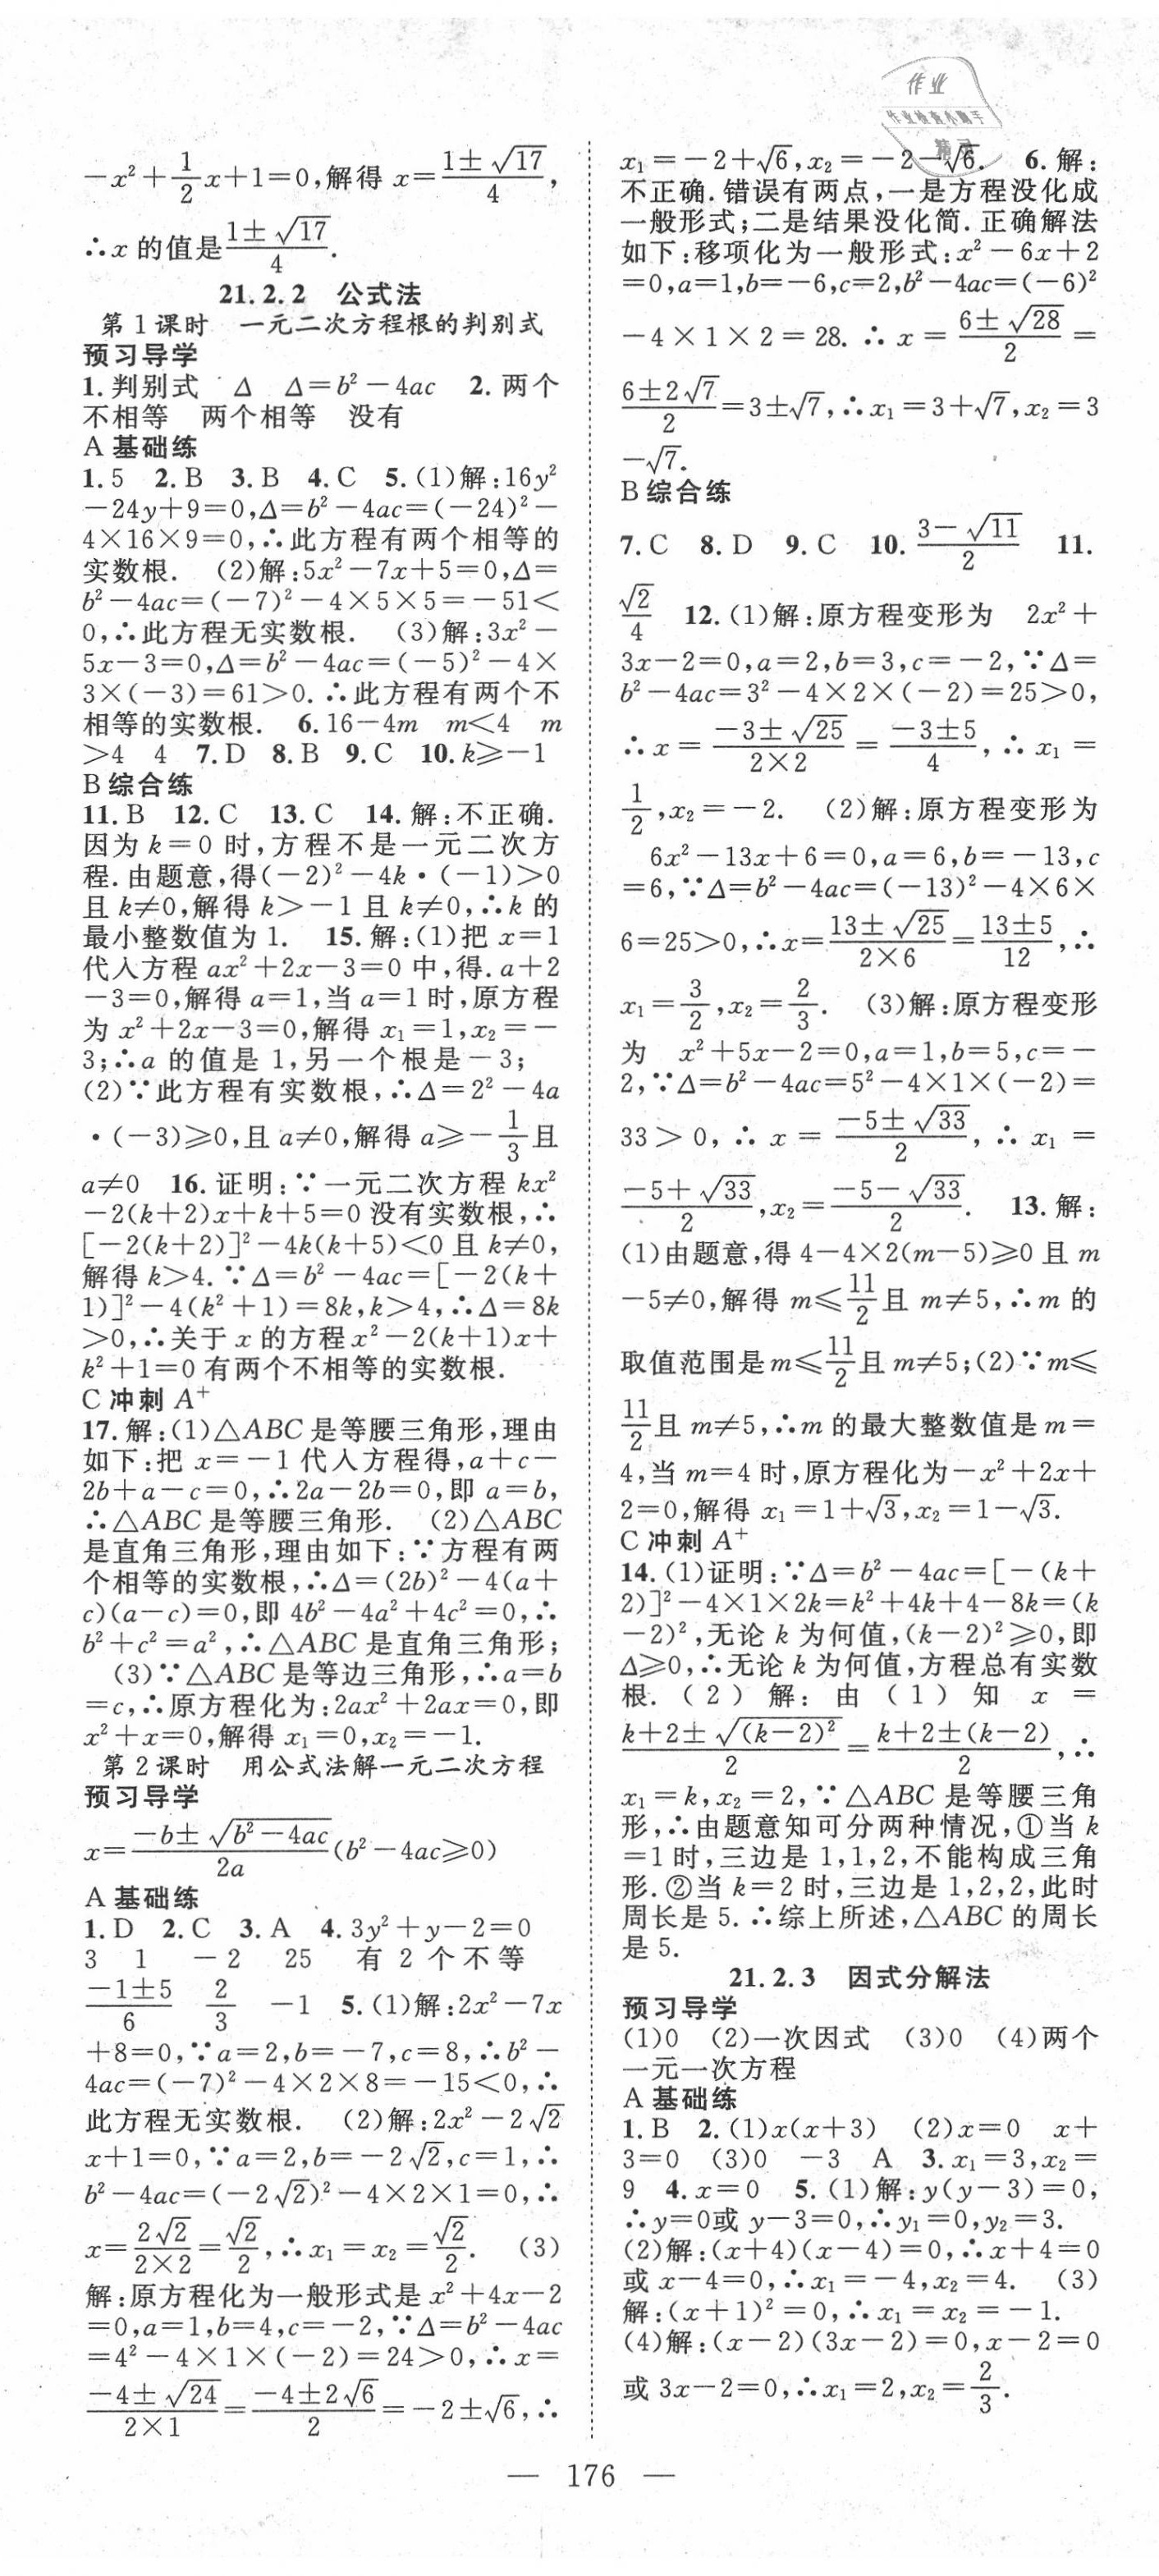 作业
作业检查小助手
−x²+1/2x+1=0,解得 x=(1±√17)/4,
∴x 的值是(1±√17)/4.
21.2.2 公式法
第1课时 一元二次方程根的判别式
预习导学
1.判别式 Δ Δ=b²−4ac 2.两个
不相等 两个相等 没有
A 基础练
1.5 2.B 3.B 4.C 5.(1)解:16y²
−24y+9=0,Δ=b²−4ac=(−24)²−
4×16×9=0,∴此方程有两个相等的
实数根. (2)解:5x²−7x+5=0,Δ=
b²−4ac=(−7)²−4×5×5=−51<
0,∴此方程无实数根. (3)解:3x²−
5x−3=0,Δ=b²−4ac=(−5)²−4×
3×(−3)=61>0.∴此方程有两个不
相等的实数根. 6.16−4m m<4 m
>4 4 7.D 8.B 9.C 10.k≥−1
B 综合练
11.B 12.C 13.C 14.解:不正确.
因为 k=0 时,方程不是一元二次方
程.由题意,得(−2)²−4k·(−1)>0
且 k≠0,解得 k>−1 且 k≠0,∴k 的
最小整数值为 1. 15.解:(1)把 x=1
代入方程 ax²+2x−3=0 中,得.a+2
−3=0,解得 a=1,当 a=1 时,原方程
为 x²+2x−3=0,解得 x₁=1,x₂=−
3;∴a 的值是 1,另一个根是−3;
(2)∵此方程有实数根,∴Δ=2²−4a
·(−3)≥0,且 a≠0,解得 a≥−1/3且
a≠0 16.证明:∵一元二次方程 kx²
−2(k+2)x+k+5=0 没有实数根,∴
[−2(k+2)]²−4k(k+5)<0 且 k≠0,
解得 k>4.∵Δ=b²−4ac=[−2(k+
1)]²−4(k²+1)=8k,k>4,∴Δ=8k
>0,∴关于 x 的方程 x²−2(k+1)x+
k²+1=0 有两个不相等的实数根.
C 冲刺 A⁺
17.解:(1)△ABC 是等腰三角形,理由
如下:把 x=−1 代入方程得,a+c−
2b+a−c=0,∴2a−2b=0,即 a=b,
∴△ABC 是等腰三角形. (2)△ABC
是直角三角形,理由如下:∵方程有两
个相等的实数根,∴Δ=(2b)²−4(a+
c)(a−c)=0,即 4b²−4a²+4c²=0,∴
b²+c²=a²,∴△ABC 是直角三角形;
(3)∵△ABC 是等边三角形,∴a=b
=c,∴原方程化为:2ax²+2ax=0,即
x²+x=0,解得 x₁=0,x₂=−1.
第2课时 用公式法解一元二次方程
预习导学
x=(−b±√(b²−4ac))/2a(b²−4ac≥0)
A 基础练
1.D 2.C 3.A 4.3y²+y−2=0
3 1 −2 25 有 2 个不等
(−1±5)/6 2/3 −1 5.(1)解:2x²−7x
+8=0,∵a=2,b=−7,c=8,∴b²−
4ac=(−7)²−4×2×8=−15<0,∴
此方程无实数根. (2)解:2x²−2√2
x+1=0,∵a=2,b=−2√2,c=1,∴
b²−4ac=(−2√2)²−4×2×1=0,∴
x=2√2/(2×2)=√2/2,∴x₁=x₂=√2/2. (3)
解:原方程化为一般形式是 x²+4x−2
=0,a=1,b=4,c=−2,∵Δ=b²−4ac
=4²−4×1×(−2)=24>0,∴x=
(−4±√24)/(2×1)=(−4±2√6)/2=−2±√6,∴
x₁=−2+√6,x₂=−2−√6. 6.解:
不正确.错误有两点,一是方程没化成
一般形式;二是结果没化简.正确解法
如下:移项化为一般形式:x²−6x+2
=0,a=1,b=−6,c=2,b²−4ac=(−6)²
−4×1×2=28.∴x=(6±√28)/2=
(6±2√7)/2=3±√7,∴x₁=3+√7,x₂=3
−√7.
B 综合练
7.C 8.D 9.C 10.(3−√11)/2 11.
√2/4 12.(1)解:原方程变形为 2x²+
3x−2=0,a=2,b=3,c=−2,∵Δ=
b²−4ac=3²−4×2×(−2)=25>0,
∴x=(−3±√25)/(2×2)=(−3±5)/4,∴x₁=
1/2,x₂=−2. (2)解:原方程变形为
6x²−13x+6=0,a=6,b=−13,c
=6,∵Δ=b²−4ac=(−13)²−4×6×
6=25>0,∴x=(13±√25)/(2×6)=(13±5)/12,∴
x₁=3/2,x₂=2/3. (3)解:原方程变形
为 x²+5x−2=0,a=1,b=5,c=−
2,∵Δ=b²−4ac=5²−4×1×(−2)=
33>0,∴x=(−5±√33)/2,∴x₁=
(−5+√33)/2,x₂=(−5−√33)/2. 13.解:
(1)由题意,得 4−4×2(m−5)≥0 且 m
−5≠0,解得 m≤11/2且 m≠5,∴m 的
取值范围是 m≤11/2且 m≠5;(2)∵m≤
11/2且 m≠5,∴m 的最大整数值是 m=
4,当 m=4 时,原方程化为−x²+2x+
2=0,解得 x₁=1+√3,x₂=1−√3.
C 冲刺 A⁺
14.(1)证明:∵Δ=b²−4ac=[−(k+
2)]²−4×1×2k=k²+4k+4−8k=(k
−2)²,无论 k 为何值,(k−2)²≥0,即
Δ≥0,∴无论 k 为何值,方程总有实数
根.(2)解:由(1)知 x=
(k+2±√(k−2)²)/2=(k+2±(k−2))/2,∴
x₁=k,x₂=2,∵△ABC 是等腰三角
形,∴由题意知可分两种情况,①当 k
=1 时,三边是 1,1,2,不能构成三角
形.②当 k=2 时,三边是 1,2,2,此时
周长是 5.∴综上所述,△ABC 的周长
是 5.
21.2.3 因式分解法
预习导学
(1)0 (2)一次因式 (3)0 (4)两个
一元一次方程
A 基础练
1.B 2.(1)x(x+3) (2)x=0 x+
3=0 (3)0 −3 A 3.x₁=3,x₂=
9 4.x=0 5.(1)解:y(y−3)=0,
∴y=0或 y−3=0,∴y₁=0,y₂=3.
(2)解:(x+4)(x−4)=0,∴x+4=0
或 x−4=0,∴x₁=−4,x₂=4. (3)
解:(x+1)²=0,∴x₁=x₂=−1.
(4)解:(x−2)(3x−2)=0,x−2=0
或 3x−2=0,∴x₁=2,x₂=2/3.
— 176 —